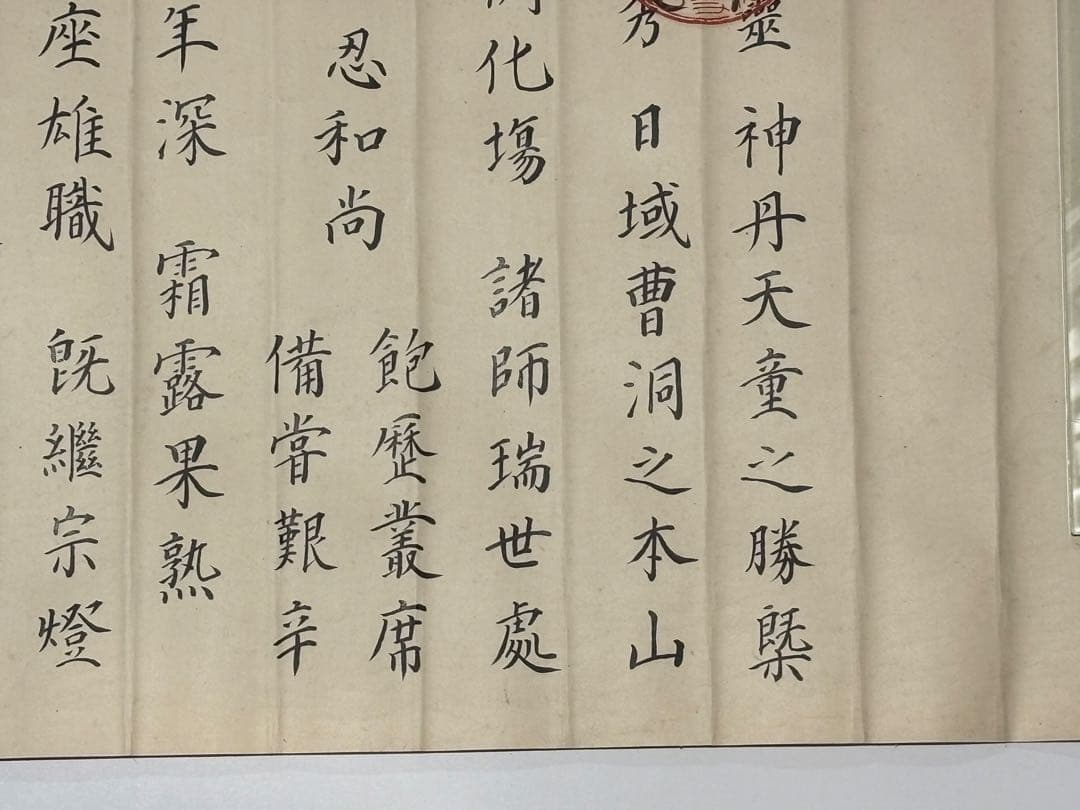 靈 神丹天童之勝槩
乃 日域曹洞之本山
化塲 諸師瑞世處
飽歷叢席
忍和尚
備甞艱辛
年深 霜露果熟
座雄職 既繼宗燈